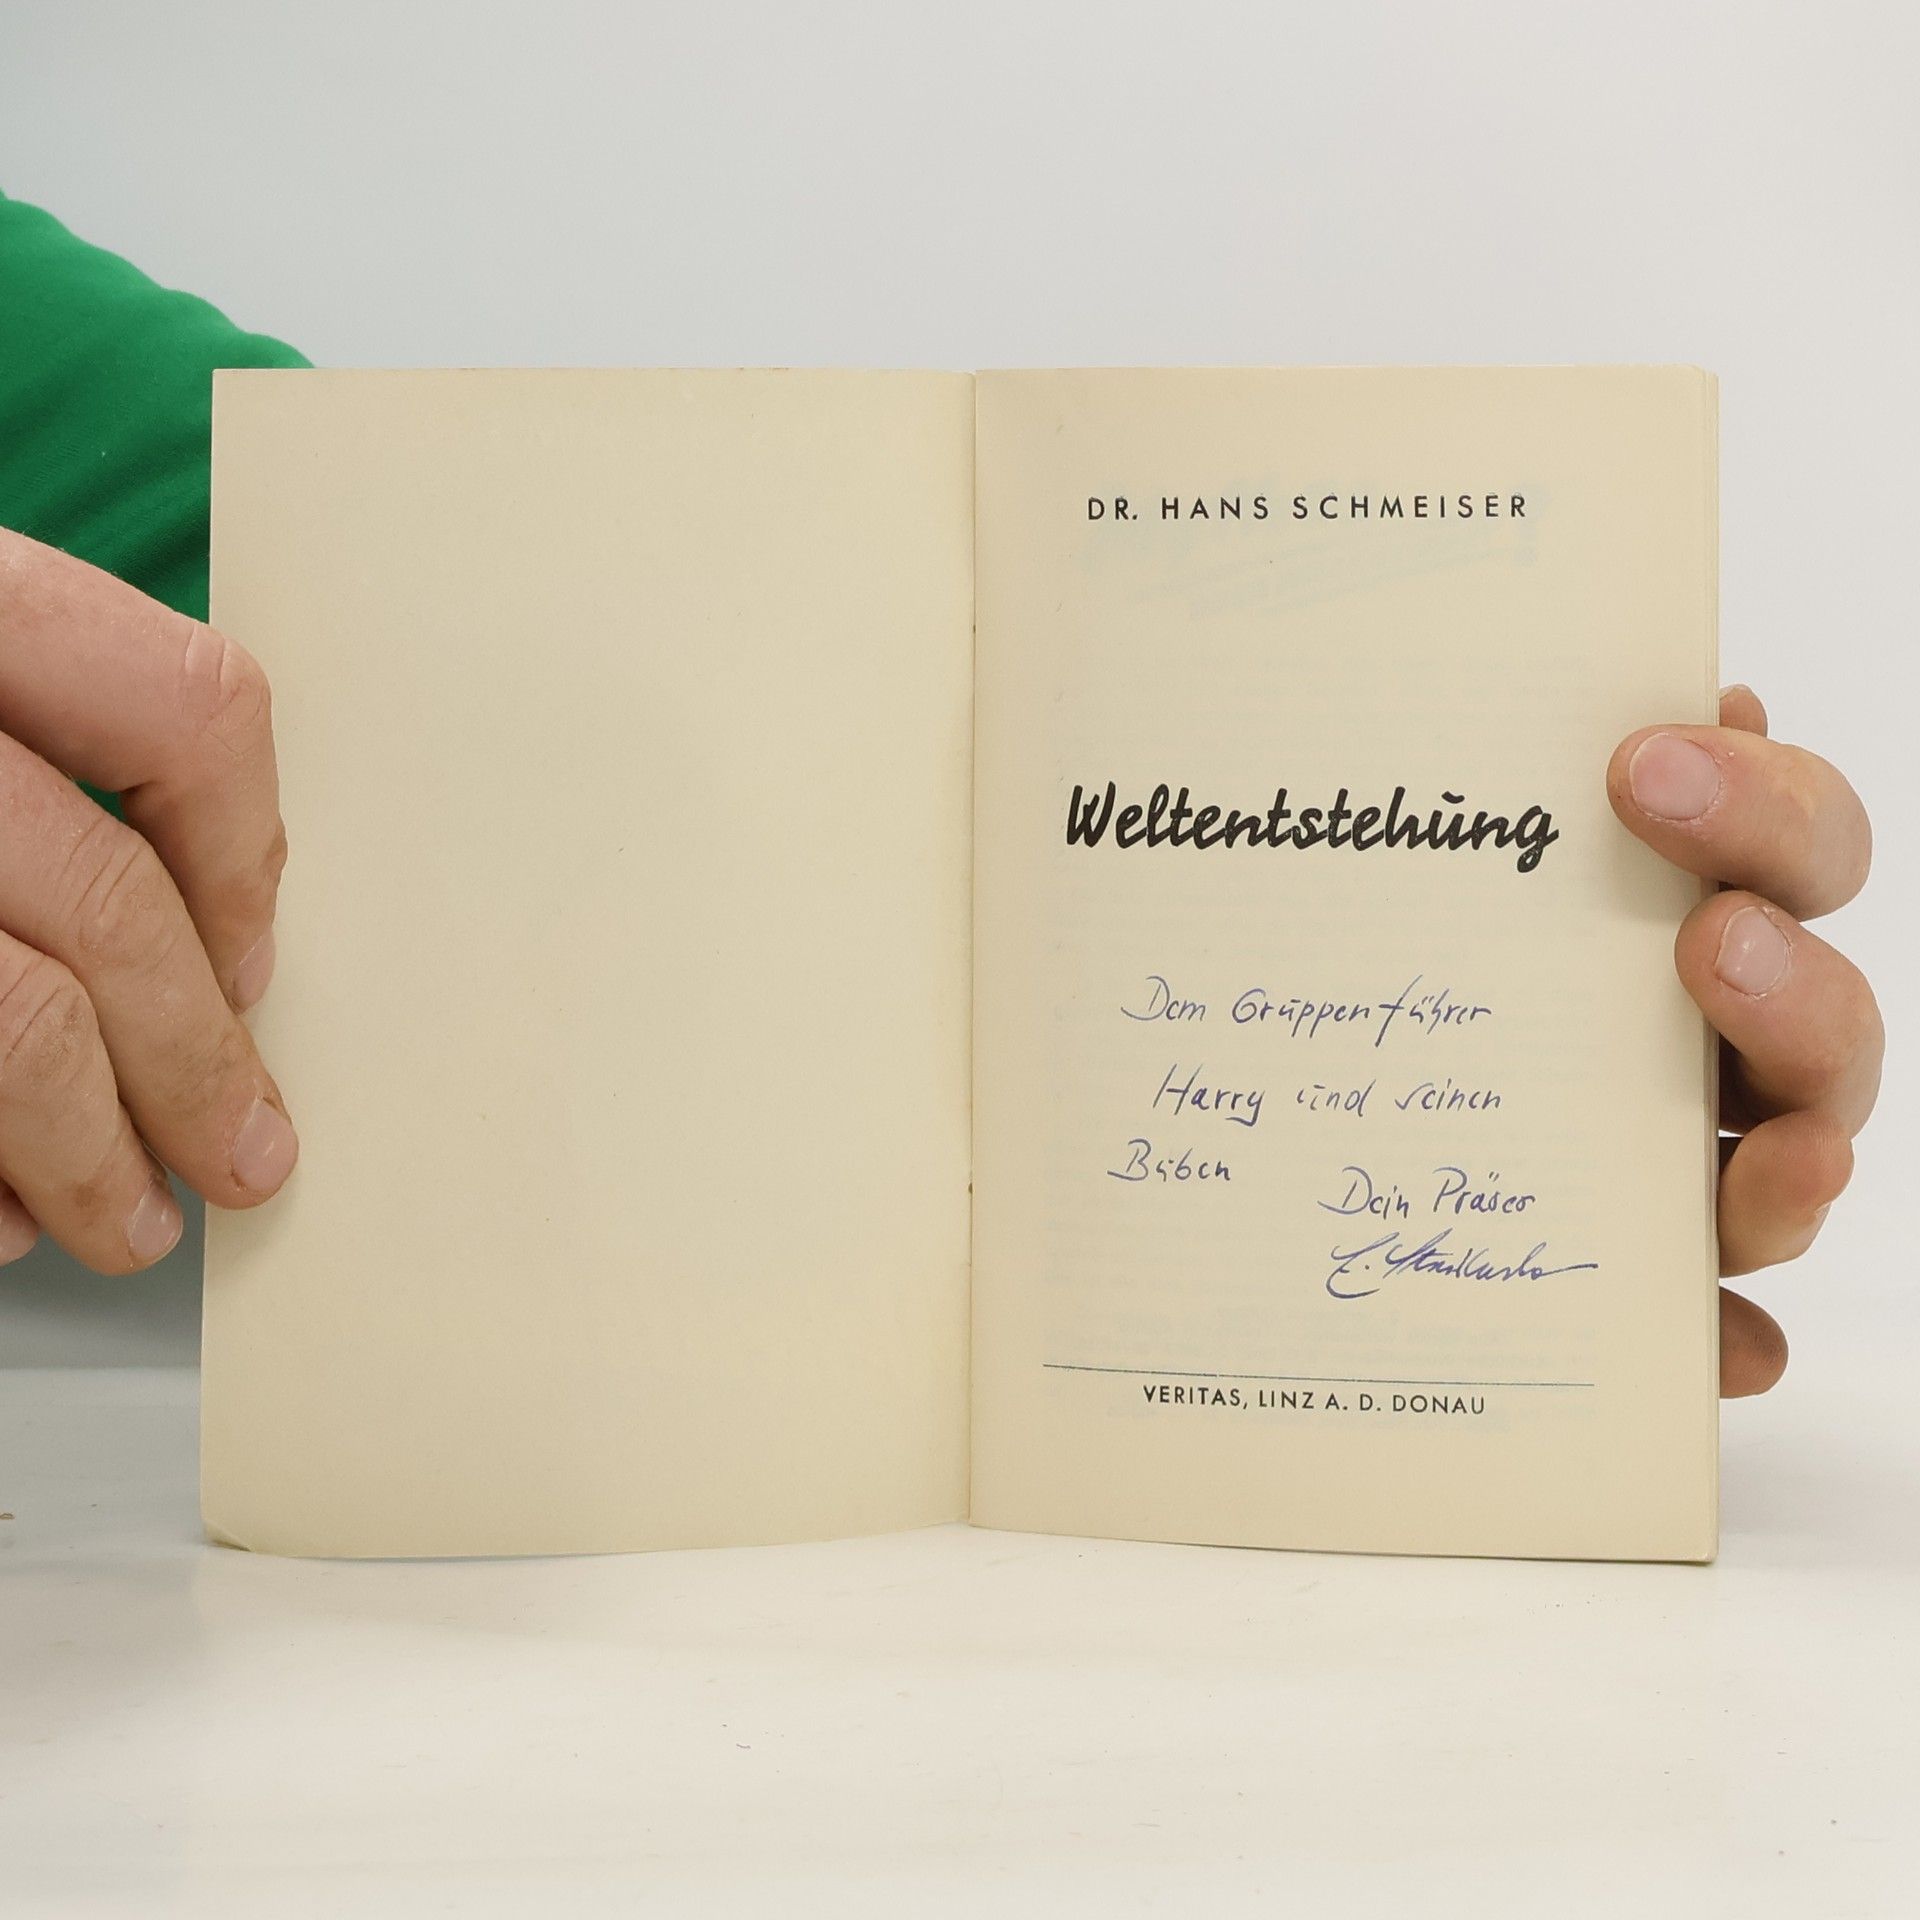 DR. HANS SCHMEISER
Weltentstehung
Dem Gruppenführer
Harry und seinen
Buben
Dein Präses
VERITAS, LINZ A. D. DONAU